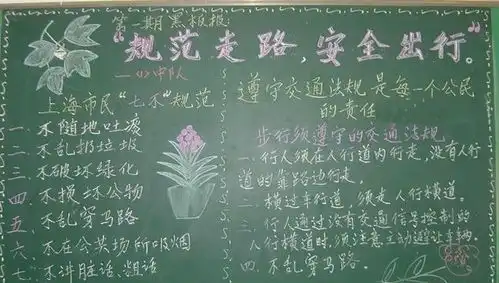 第一期黑板报:
"规范走路,安全出行。"
—(1)中队
上海市民"七不"规范
一、不随地吐痰
二、不乱扔垃圾
三、不破坏绿化
四、不损坏公物
五、不乱穿马路
六、不在公共场所吸烟
七、不讲脏话、粗话
遵守交通法规是每一个公民
的责任
步行须遵守的交通法规
一、行人须在人行道内行走,没有人行
道的靠路边行走。
二、横过车行道,须走人行横道。
三、行人通过没有交通信号控制的
人行横道时,须注意主动避让车辆。
四、不乱穿马路。